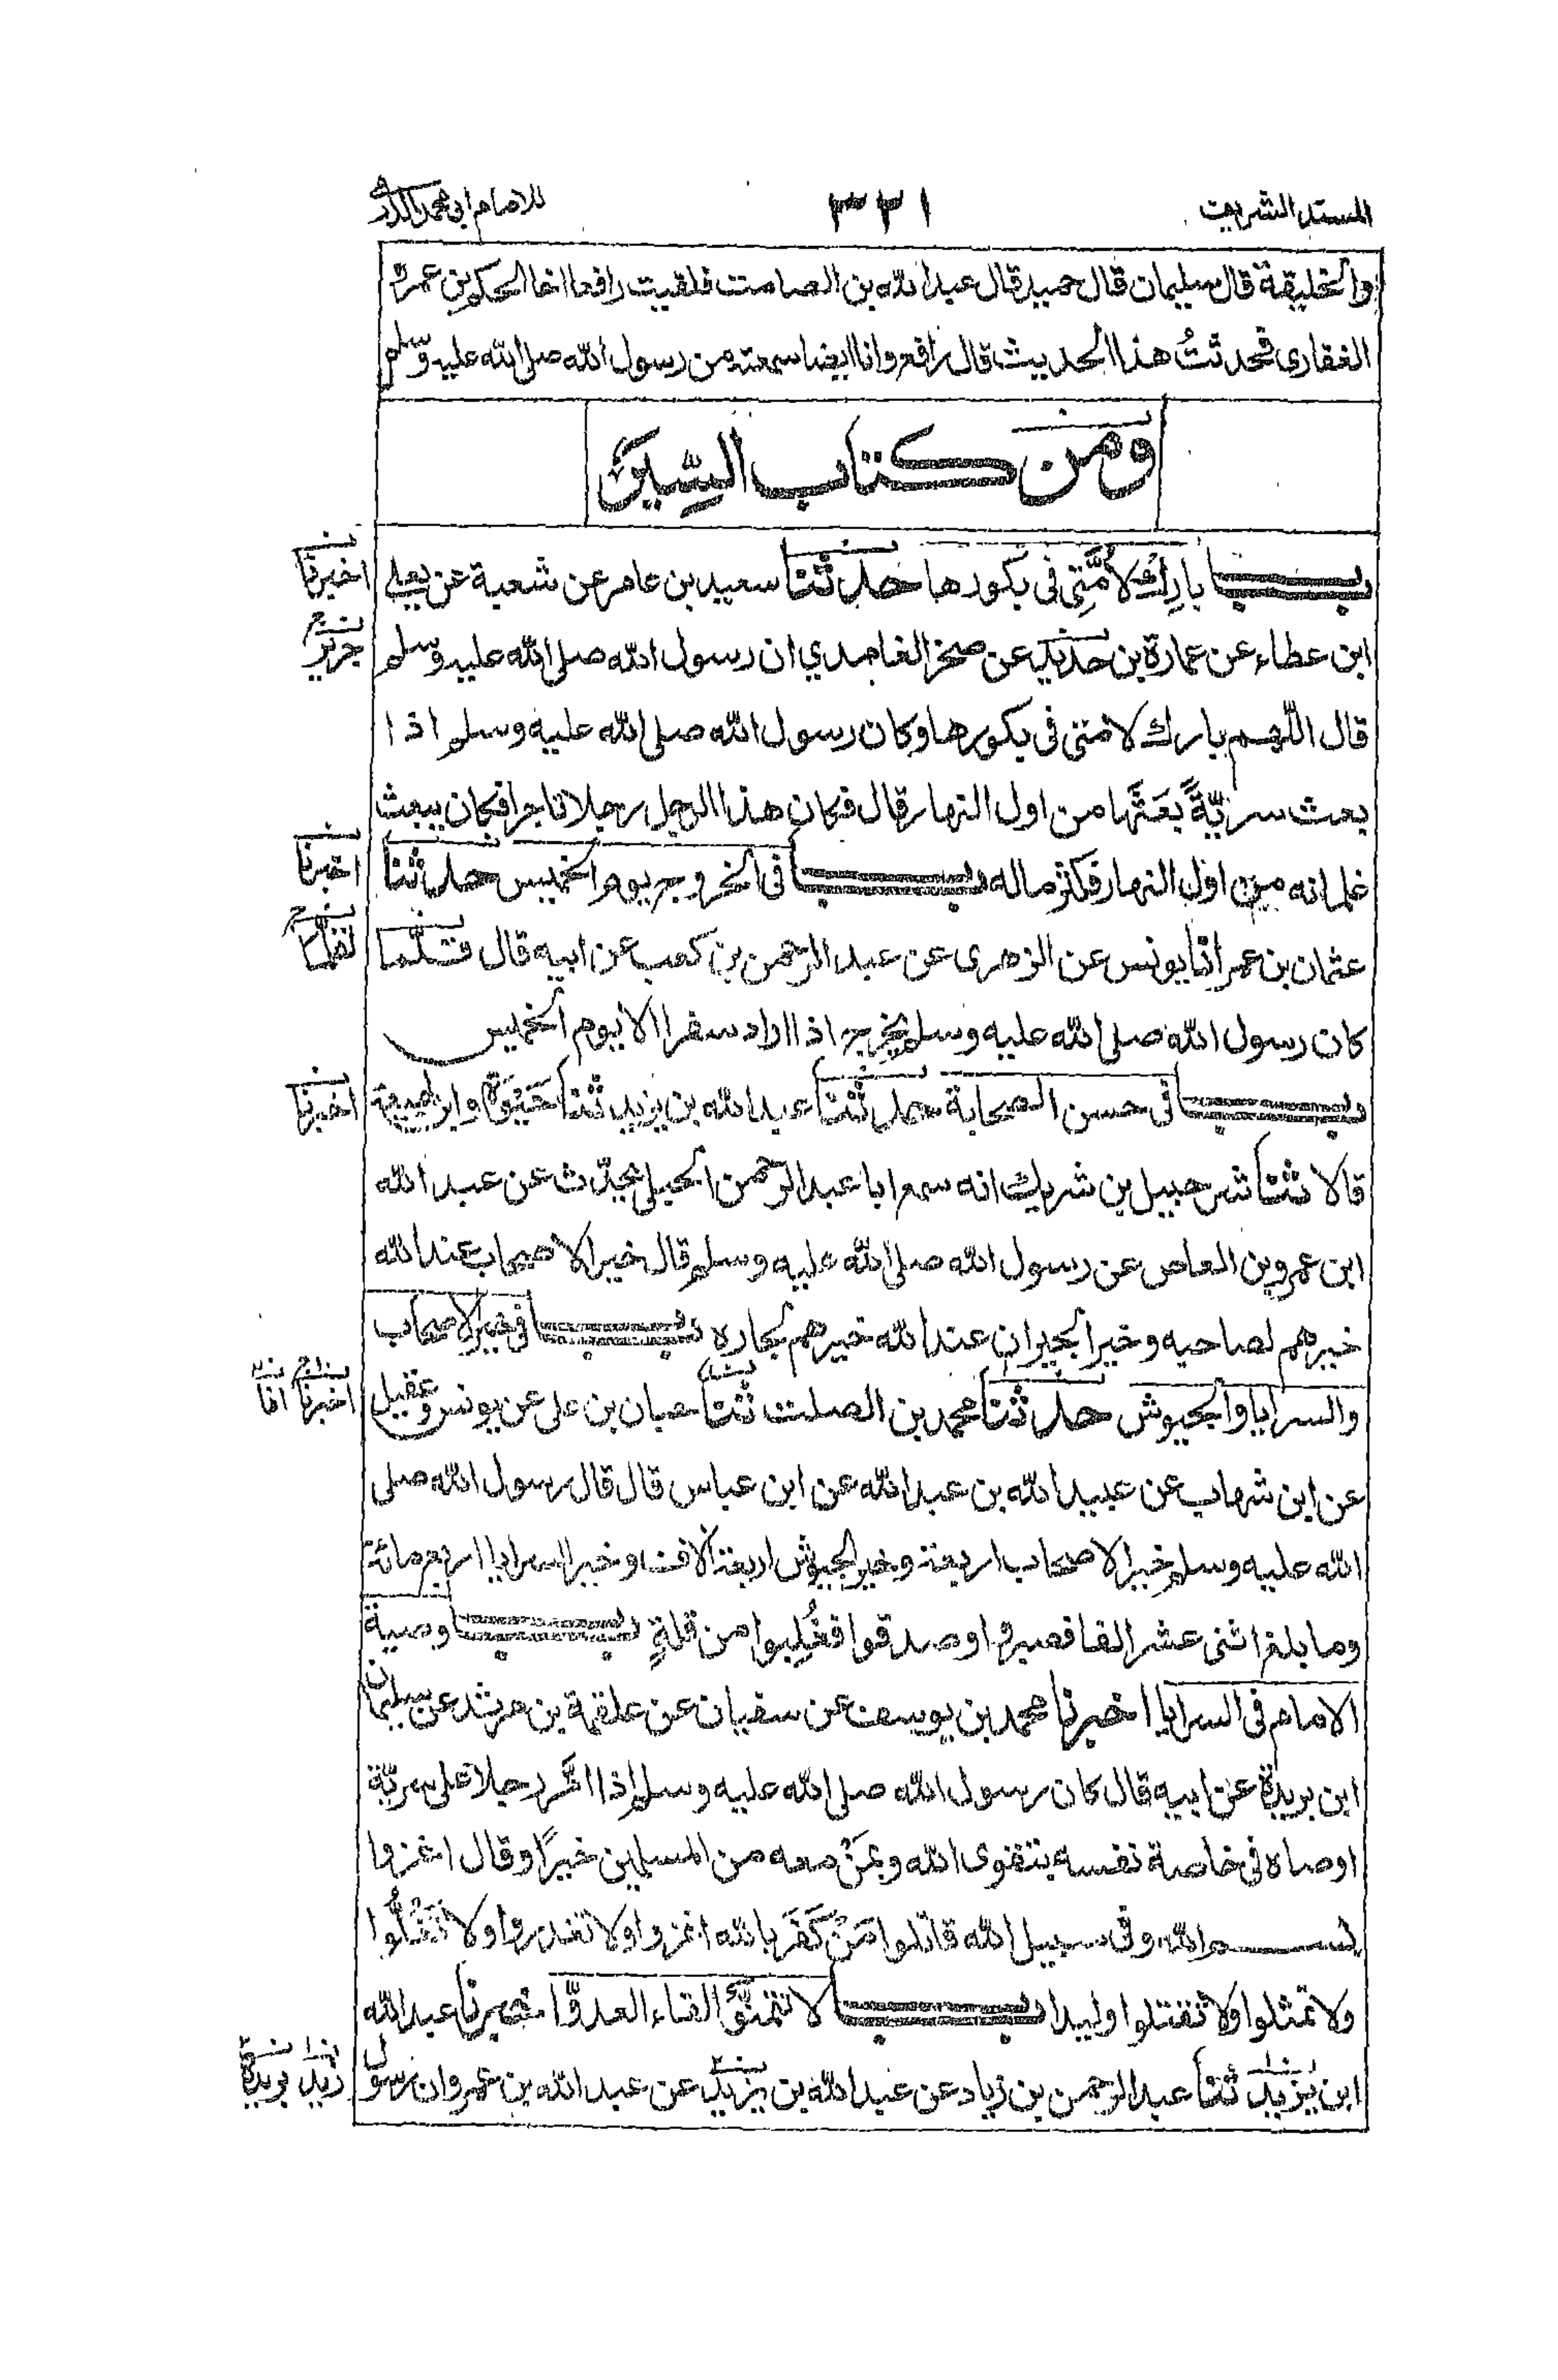 المسند الشريف ٣٢١ للامام ابى محمد الدارمي
والخليقة قال سليمان قال حميد قال عبدالله بن الصامت فلقيت رافعا اخا الحكم بن عمرو
الغفارى فحدثتُ هذا الحديث قال رافع وانا ايضا سمعته من رسول الله صلى الله عليه وسلم
ومن كتاب السِّيَر
باب بارك لأمَّتِي فى بكورها حدثنا سعيد بن عامر عن شعبة عن يعلى
اخبرنا
ابن عطاء عن عمارة بن حديد عن صخر الغامدي ان رسول الله صلى الله عليه وسلم
قال اللهم بارك لامتى فى بكورها وكان رسول الله صلى الله عليه وسلم اذا
بعث سريّةً بَعَثَها من اول النهار قال فكان هذا الرجل رجلا تاجرا فكان يبعث
غلمانه من اول النهار فكثر ماله باب فى الخروج يوم الخميس حدثنا
اخبرنا
عثمان بن عمر انا يونس عن الزهرى عن عبد الرحمن بن كعب عن ابيه قال قلّما
لقلّما
كان رسول الله صلى الله عليه وسلم يخرج اذا اراد سفرا الا يوم الخميس
باب فى حسن الصحابة حدثنا عبدالله بن يزيد ثنا حَيْوَة وابن لهيعة
اخبرنا
قالا ثنا شرحبيل بن شريك انه سمع ابا عبد الرحمن الحبلى يحدّث عن عبد الله
ابن عمرو بن العاص عن رسول الله صلى الله عليه وسلم قال خير الاصحاب عند الله
خيرهم لصاحبه وخير الجيران عند الله خيرهم لجاره باب فى خير الاصحاب
والسرايا والجيوش حدثنا محمد بن الصلت ثنا حبان بن على عن يونس وعقيل
اخبرنا انا
عن ابن شهاب عن عبيد الله بن عبد الله عن ابن عباس قال قال رسول الله صلى
الله عليه وسلم خير الاصحاب اربعة وخير الجيوش اربعة آلاف وخير السرايا اربع مائة
وما بلغ اثنى عشر الفا فصبروا وصدقوا فغُلِبوا من قلةٍ باب وصية
الامام فى السرايا اخبرنا محمد بن يوسف عن سفيان عن علقمة بن مرثد عن سليمان
ابن بريدة عن ابيه قال كان رسول الله صلى الله عليه وسلم اذا امّر رجلا على سريّة
اوصاه فى خاصة نفسه بتقوى الله وبمَنْ معه من المسلمين خيرًا وقال اغزوا
بسم الله وفى سبيل الله قاتلوا مَنْ كَفَرَ بالله اغزوا ولا تغدروا ولا تَغُلُّوا
ولا تمثلوا ولا تقتلوا وليدا باب لا تتمنَّوْا لقاء العدوّ اخبرنا عبد الله
ابن يزيد ثنا عبد الرحمن بن زياد عن عبد الله بن يزيد عن عبد الله بن عمرو ان رسول
زيد بريدة